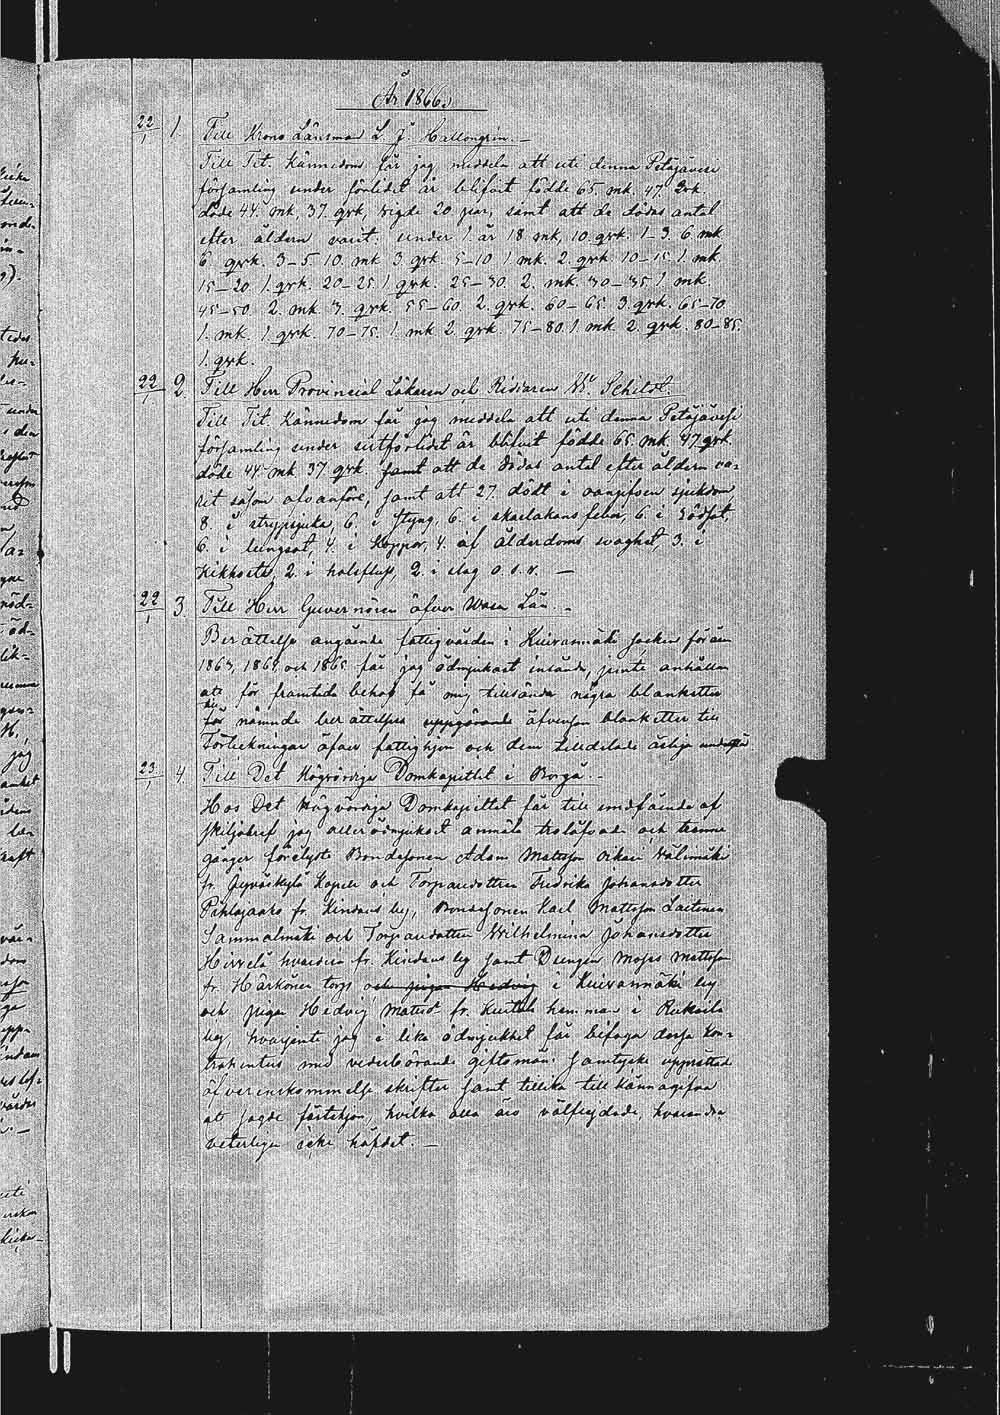 År 1866.
22/1 1. Till Krono Länsman L. J. Hallongren. –
Till Tit. kännedom får jag meddela att uti denna Petäjävesi
församling under förlidet år blifvit födde 65. mk. 47. qvk.
döde 44. mk, 37. qvk, vigde 20 par, samt att de dödas antal
efter åldern varit: under 1. år 18 mk, 10. qvk. 1–3. 6 mk
6. qvk. 3–5 10. mk 3 qvk 5–10 1 mk. 2. qvk. 10–15. 1. mk.
15–20. 1. qvk. 20–25. 1 qvk. 25–30. 2. mk. 30–35. 1 mk.
45–50. 2. mk. 3. qvk. 55–60. 2. qvk. 60–65. 3. qvk. 65–70.
1. mk. 1. qvk. 70–75. 1. mk 2. qvk. 75–80. 1 mk. 2. qvk. 80–85.
1. qvk.
22/1 2. Till Herr Provincial Läkaren och Riddaren Wr. Schildt.
Till Tit. kännedom får jag meddela att uti denna Petäjävesi
församling under sistförlidet år blifvit födde 65. mk. 47 qvk.
döde 44 mk 37. qvk samt att de dödas antal efter åldern va-
rit såsom ofvanföre, samt att 27. dödt i oangifven sjukdom,
8. i strypsjuka, 6. i styng, 6. i skarlakansfeber, 6. i rödsot,
6. i lungsot, 4. i Koppor, 4. af ålderdoms svaghet, 3. i
Kikhosta, 2. i halsfluss, 2. i slag o. s. v. —
22/1 3. Till Herr Guvernören öfver Wasa Län. –
Berättelse angående fattigvården i Kuivasmäki socken för åren
1863, 1864 och 1865 får jag ödmjukast insända, jemte anhållan
att för framtida behof få mig tillsända några blanketter
till
för nämnde berättelsers uppgörande äfvensom blanketter till
Förteckningar öfver fattighjon och dem tilldelade årliga understöd
23/1 4. Till Det Högvördiga Domkapitlet i Borgå. –
Hos Det Högvördiga Domkapitlet får till undfående af
skiljobref jag allerödmjukast anmäla trolofvade och trenne
gånger förelyste Bondesonen Adam Mattsson Oikari Välimäki
fr. Jyväskylä Kapell och Torparedottren Fredrika Johansdotter
fr. Kindaus by, Bondesonen Karl Mattsson Laitinen
Sammalmäki och Torparedottren Wilhelmina Johansdotter
Hirvelä hvardera fr. Kindaus by samt Drengen Moses Mattsson
fr. Härkönen torp och pigan Hedvig i Kuivasmäki by
och pigan Hedvig Matsd. fr. hemman i
by, hvarjemte jag i lika ödmjukhet får bifoga dessa kon-
trahenters med vederbörande giftomäns samtycke upprättade
öfverenskommelse skrifter samt tillika tillkännagifva
att sagde fästehjon, hvilka alla äro välfrejdade, hvarandra
veterligen icke häfdat. —